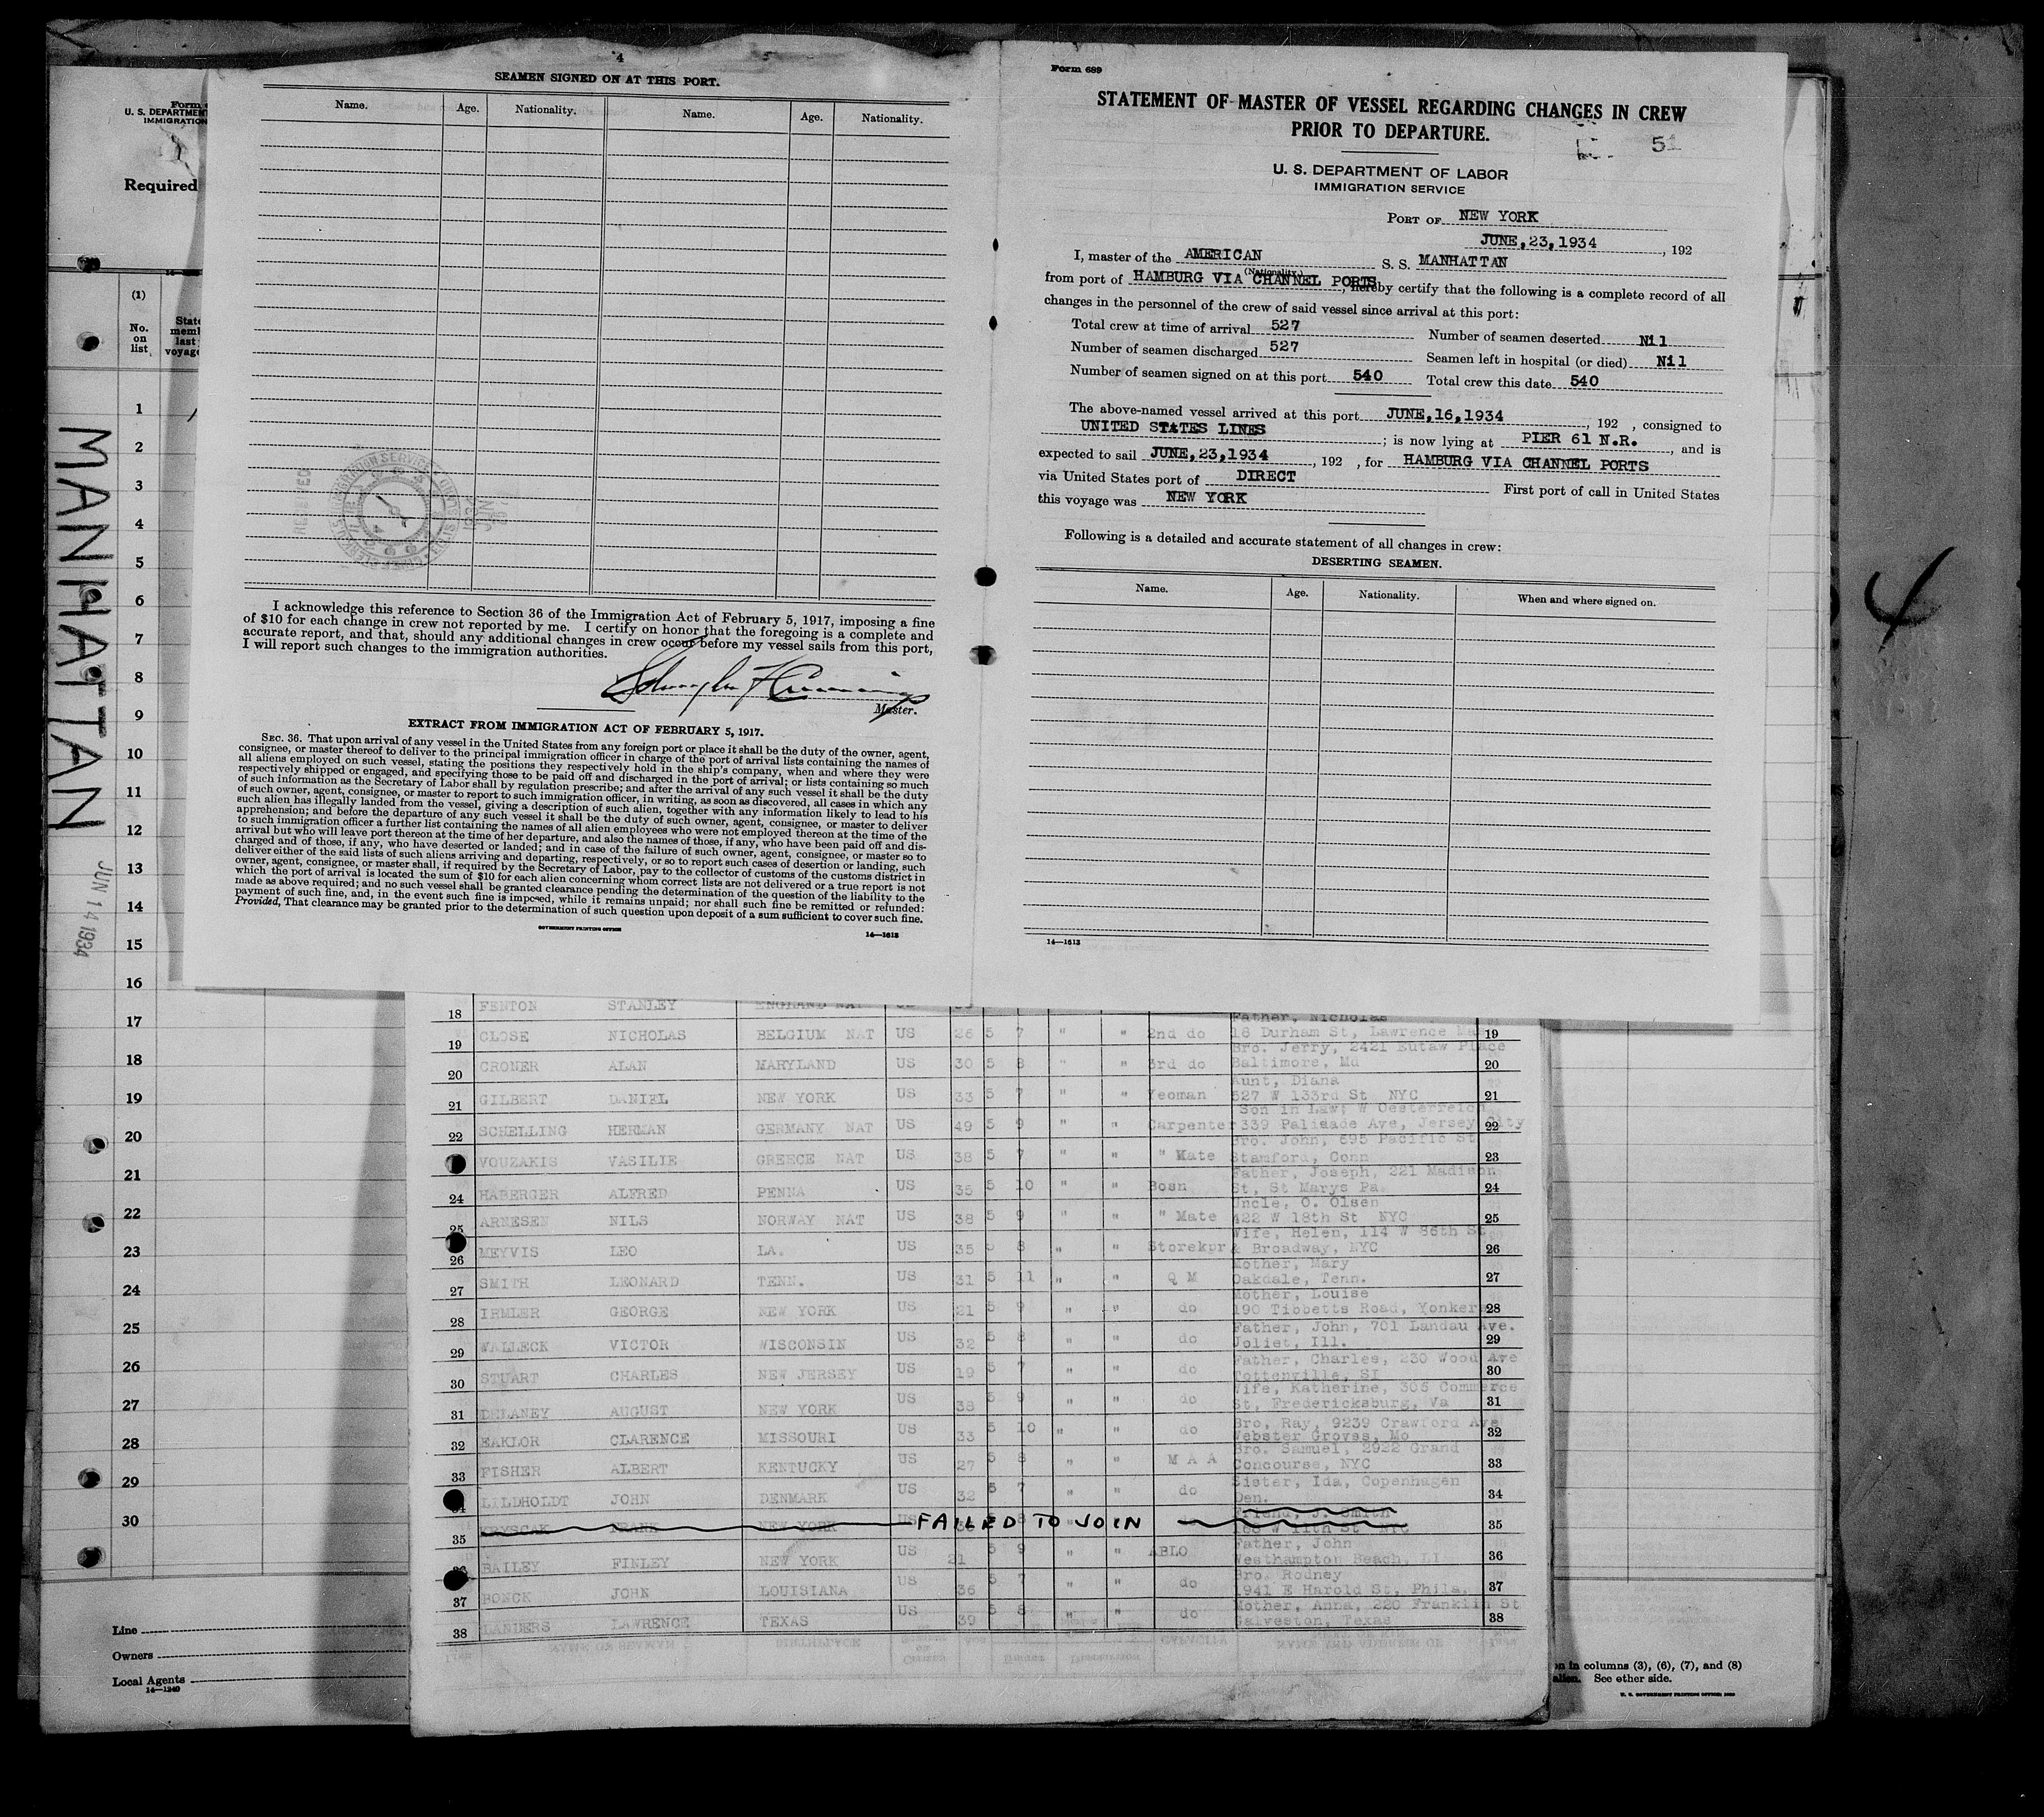 4 5
SEAMEN SIGNED ON AT THIS PORT.
Name. Age. Nationality. Name. Age. Nationality.
RECEIVED
I acknowledge this reference to Section 36 of the Immigration Act of February 5, 1917, imposing a fine
of $10 for each change in crew not reported by me. I certify on honor that the foregoing is a complete and
accurate report, and that, should any additional changes in crew occur before my vessel sails from this port,
I will report such changes to the immigration authorities.
Master.
EXTRACT FROM IMMIGRATION ACT OF FEBRUARY 5, 1917.
SEC. 36. That upon arrival of any vessel in the United States from any foreign port or place it shall be the duty of the owner, agent,
consignee, or master thereof to deliver to the principal immigration officer in charge of the port of arrival lists containing the names of
all aliens employed on such vessel, stating the positions they respectively hold in the ship's company, when and where they were
respectively shipped or engaged, and specifying those to be paid off and discharged in the port of arrival; or lists containing so much
of such information as the Secretary of Labor shall by regulation prescribe; and after the arrival of any such vessel it shall be the duty
of such owner, agent, consignee, or master to report to such immigration officer, in writing, as soon as discovered, all cases in which any
such alien has illegally landed from the vessel, giving a description of such alien, together with any information likely to lead to his
apprehension; and before the departure of any such vessel it shall be the duty of such owner, agent, consignee, or master to deliver
to such immigration officer a further list containing the names of all alien employees who were not employed thereon at the time of the
arrival but who will leave port thereon at the time of her departure, and also the names of those, if any, who have been paid off and dis-
charged and of those, if any, who have deserted or landed; and in case of the failure of such owner, agent, consignee, or master so to
deliver either of the said lists of such aliens arriving and departing, respectively, or so to report such cases of desertion or landing, such
owner, agent, consignee, or master shall, if required by the Secretary of Labor, pay to the collector of customs of the customs district in
which the port of arrival is located the sum of $10 for each alien concerning whom correct lists are not delivered or a true report is not
made as above required; and no such vessel shall be granted clearance pending the determination of the question of the liability to the
payment of such fine, and, in the event such fine is imposed, while it remains unpaid; nor shall such fine be remitted or refunded:
Provided, That clearance may be granted prior to the determination of such question upon deposit of a sum sufficient to cover such fine.
GOVERNMENT PRINTING OFFICE 14—1613
Form 689
STATEMENT OF MASTER OF VESSEL REGARDING CHANGES IN CREW
PRIOR TO DEPARTURE.
51
U. S. DEPARTMENT OF LABOR
IMMIGRATION SERVICE
PORT OF NEW YORK
JUNE,23,1934, 192
I, master of the AMERICAN S. S. MANHATTAN
(Nationality)
from port of HAMBURG VIA CHANNEL PORTS, hereby certify that the following is a complete record of all
changes in the personnel of the crew of said vessel since arrival at this port:
Total crew at time of arrival 527 Number of seamen deserted Nil
Number of seamen discharged 527 Seamen left in hospital (or died) Nil
Number of seamen signed on at this port 540 Total crew this date 540
The above-named vessel arrived at this port JUNE,16,1934, 192 , consigned to
UNITED STATES LINES; is now lying at PIER 61 N.R., and is
expected to sail JUNE,23,1934, 192 , for HAMBURG VIA CHANNEL PORTS
via United States port of DIRECT First port of call in United States
this voyage was NEW YORK
Following is a detailed and accurate statement of all changes in crew:
DESERTING SEAMEN.
Name. Age. Nationality. When and where signed on.
14—1613
U. S. DEPARTMEN
IMMIGRATION
Required
(1)
No.
on
list
State
memb
last
voyage
1
2
3
4
5
6
7
8
9
10
11
12
13
14
15
16
17
18
19
20
21
22
23
24
25
26
27
28
29
30
MANHATTAN
JUN 14 1934
Line
Owners
Local Agents
14—1240
18 FENTON STANLEY ENGLAND NAT
Father, Nicholas
19 CLOSE NICHOLAS BELGIUM NAT US 26 5 7 " " 2nd do 18 Durham St, Lawrence Ma 19
Bro. Jerry, 2421 Eutaw Place
20 CRONER ALAN MARYLAND US 30 5 8 " " 3rd do Baltimore, Md 20
Aunt, Diana
21 GILBERT DANIEL NEW YORK US 33 5 7 " " Yeoman 527 W 133rd St NYC 21
Son in Law, W Oesterreich
22 SCHELLING HERMAN GERMANY NAT US 49 5 9 " " Carpenter 339 Palisade Ave, Jersey City 22
Bro. John, 695 Pacific St
VOUZAKIS VASILIE GREECE NAT US 38 5 7 " " " Mate Stamford, Conn 23
Father, Joseph, 221 Madison
24 HABERGER ALFRED PENNA US 35 5 10 " " Bosn St, St Marys Pa. 24
Uncle, O. Olsen
25 ARNESEN NILS NORWAY NAT US 38 5 9 " " " Mate 422 W 18th St NYC 25
Wife, Helen, 114 W 86th St
26 MEYVIS LEO LA. US 35 5 8 " " Storekpr & Broadway, NYC 26
Mother, Mary
27 SMITH LEONARD TENN. US 31 5 11 " " Q M Oakdale, Tenn. 27
Mother, Louise
28 IRMLER GEORGE NEW YORK US 21 5 9 " " do 190 Tibbetts Road, Yonkers 28
Father, John, 701 Landau Ave.
29 WALLECK VICTOR WISCONSIN US 32 5 8 " " do Joliet, Ill. 29
Father, Charles, 230 Wood Ave
30 STUART CHARLES NEW JERSEY US 19 5 7 " " do Tottenville, SI 30
Wife, Katherine, 305 Commerce
31 DELANEY AUGUST NEW YORK US 38 5 9 " " do St, Fredericksburg, Va 31
Bro, Ray, 9239 Crawford Ave
32 EAKLOR CLARENCE MISSOURI US 33 5 10 " " do Webster Groves, Mo 32
Bro. Samuel, 2922 Grand
33 FISHER ALBERT KENTUCKY US 27 5 8 " " M A A Concourse, NYC 33
Sister, Ida, Copenhagen
LILDHOLDT JOHN DENMARK US 32 5 7 " " do Den. 34
Friend, J. Smith
35 FRANK NEW YORK US FAILED TO JOIN 168 W 11th St NYC 35
Father, John
BAILEY FINLEY NEW YORK US 21 5 9 " " ABLO Westhampton Beach, LI 36
Bro. Rodney
37 BONCK JOHN LOUISIANA US 36 5 7 " " do 1941 E Harold St, Phila. 37
Mother, Anna, 220 Franklin St
38 LANDERS LAWRENCE TEXAS US 39 5 8 " " do Galveston, Texas 38
n in columns (3), (6), (7), and (8)
alien. See other side.
U. S. GOVERNMENT PRINTING OFFICE